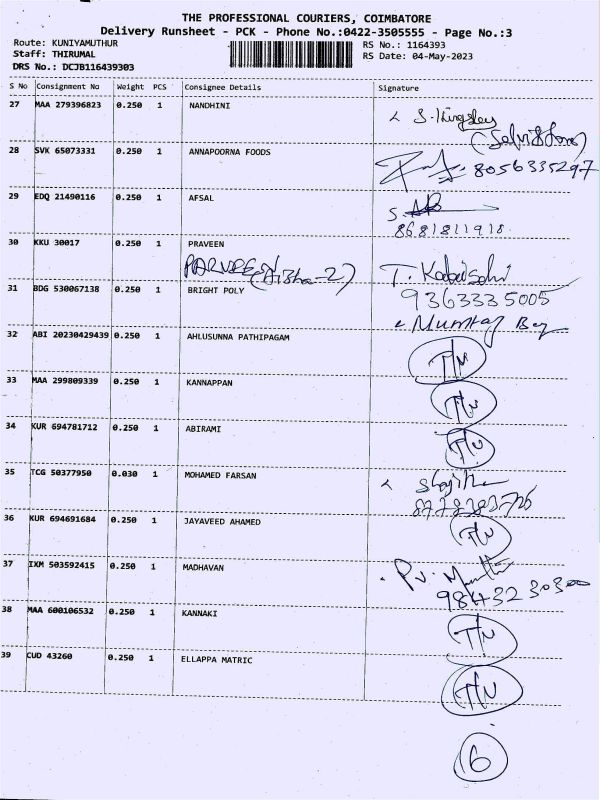 THE PROFESSIONAL COURIERS, COIMBATORE
Delivery Runsheet - PCK - Phone No.:0422-3505555 - Page No.:3
Route: KUNIYAMUTHUR RS No.: 1164393
Staff: THIRUMAL RS Date: 04-May-2023
DRS No.: DCJB116439303
S No Consignment No Weight PCS Consignee Details Signature
27 MAA 279396823 0.250 1 NANDHINI S. Kingsley
28 SVK 65073331 0.250 1 ANNAPOORNA FOODS 8056335297
29 EDQ 21490116 0.250 1 AFSAL
8681811918
30 KKU 30017 0.250 1 PRAVEEN
31 BDG 530067138 0.250 1 BRIGHT POLY 9363335005
Mumtaj Be
32 ABI 20230429439 0.250 1 AHLUSUNNA PATHIPAGAM T/N
33 MAA 299809339 0.250 1 KANNAPPAN T/N
34 KUR 694781712 0.250 1 ABIRAMI T/N
35 TCG 50377950 0.030 1 MOHAMED FARSAN
36 KUR 694691684 0.250 1 JAYAVEED AHAMED T/N
37 IXM 503592415 0.250 1 MADHAVAN
9843230300
38 MAA 600106532 0.250 1 KANNAKI T/N
39 CUD 43260 0.250 1 ELLAPPA MATRIC T/N
16